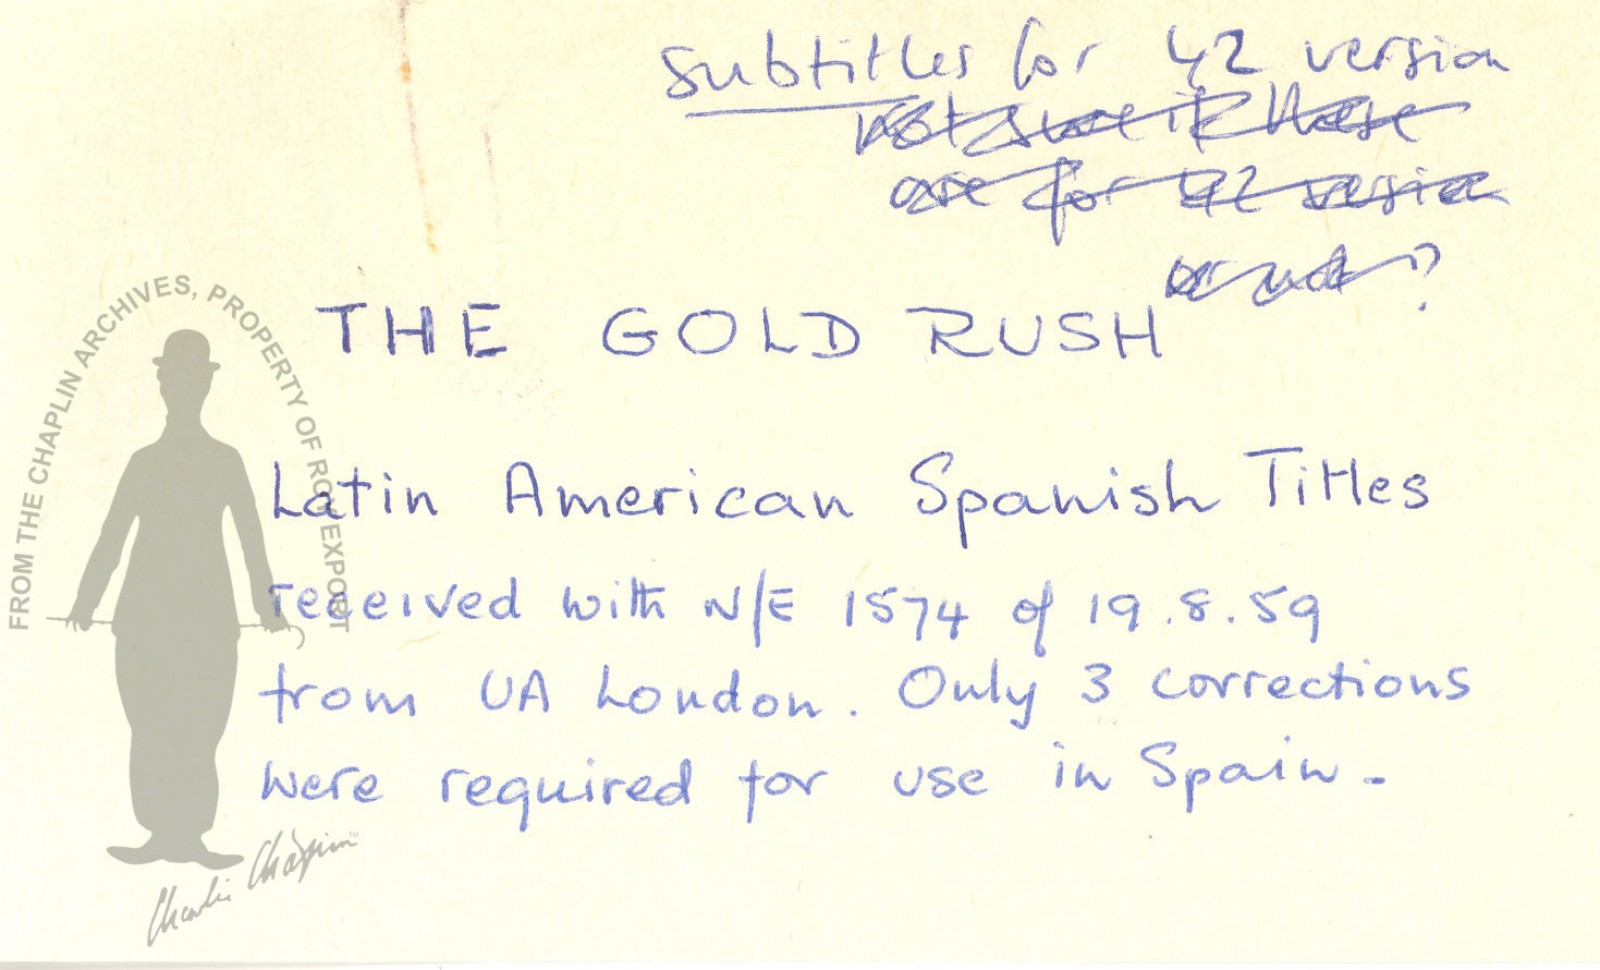 subtitles for 42 version
not sure if these
are for 42 version
or not?
THE GOLD RUSH
Latin American Spanish Titles
received with N/E 1574 of 19.8.59
from UA London. Only 3 corrections
were required for use in Spain.
FROM THE CHAPLIN ARCHIVES, PROPERTY OF ROY EXPORT
Charlie Chaplin™